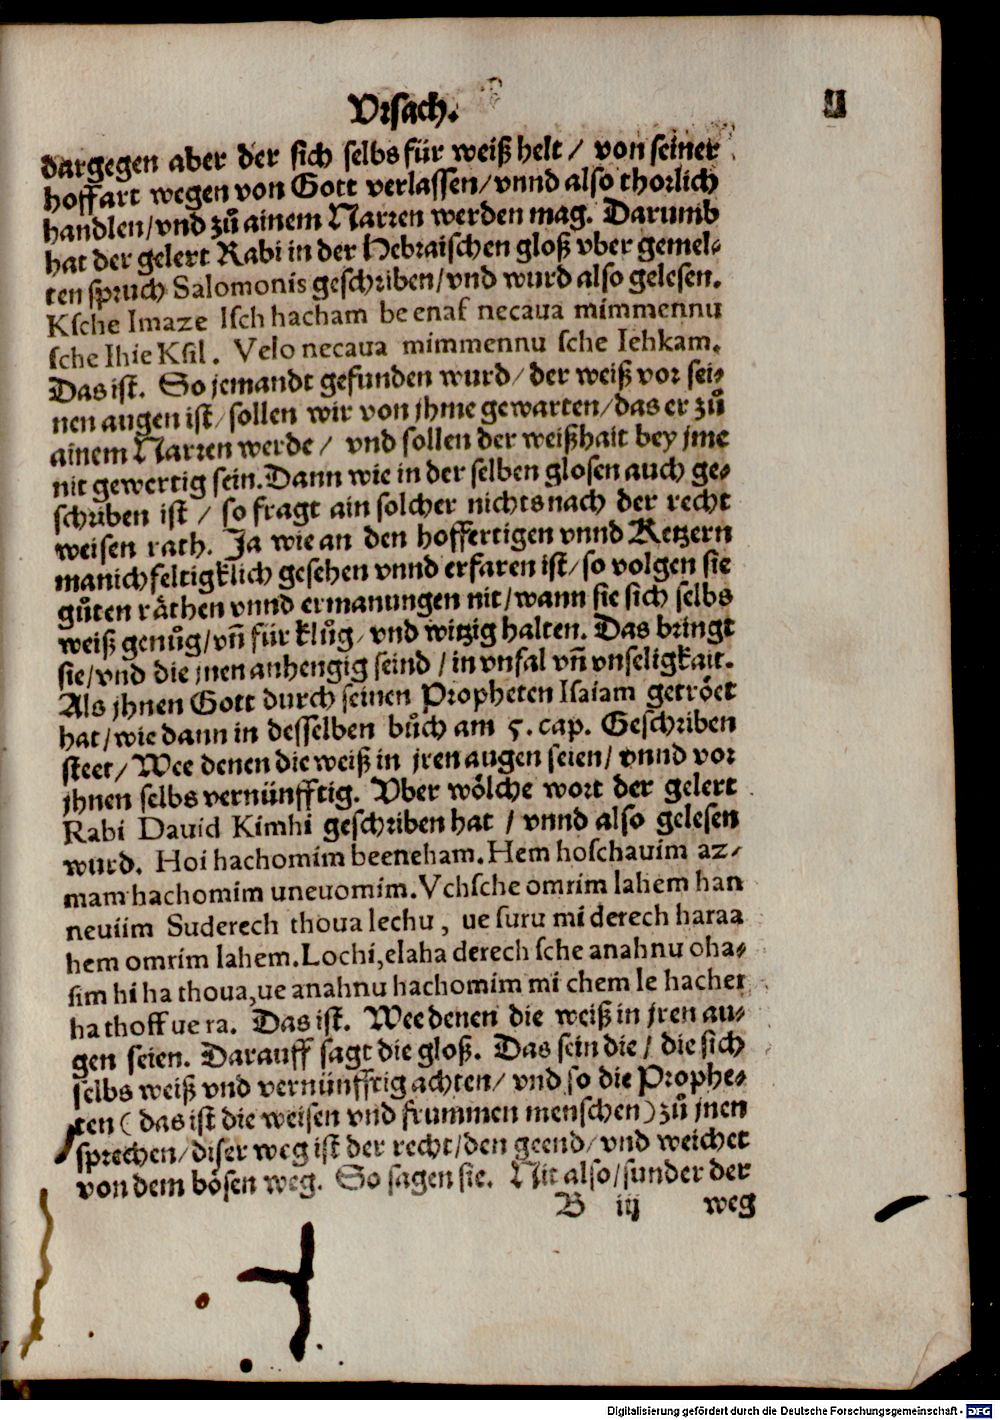 Vrsach.
dargegen aber der sich selbs für weiß helt / von seiner
hoffart wegen von Gott verlassen/vnnd also thorlich
handlen/vnd zů ainem Narren werden mag. Darumb
hat der gelert Rabi in der Hebraischen gloß vber gemel⸗
ten spruch Salomonis geschriben/vnd wurd also gelesen.
Ksche Imaze Isch hacham be enaf necaua mimmennu
sche Ihie Ksil. Velo necaua mimmennu sche Iehkam.
Das ist. So jemandt gefunden wurd/ der weiß vor sei⸗
nen augen ist/ sollen wir von jhme gewarten/das er zů
ainem Narren werde/ vnd sollen der weißhait bey jme
nit gewertig sein. Dann wie in der selben glosen auch ge⸗
schriben ist / so fragt ain solcher nichts nach der recht
weisen rath. Ja wie an den hoffertigen vnnd Ketzern
manichfeltigklich gesehen vnnd erfaren ist/ so volgen sie
gůten räthen vnnd ermanungen nit/wann sie sich selbs
weiß genůg/vñ für klůg/ vnd witzig halten. Das bringt
sie/vnd die jnen anhengig seind / in vnfal vñ vnseligkait.
Als jhnen Gott durch seinen Propheten Isaiam getröet
hat/wie dann in desselben bůch am 5. cap. Geschriben
steet/Wee denen die weiß in jren augen seien/ vnnd vor
jhnen selbs vernünfftig. Vber wölche wort der gelert
Rabi Dauid Kimhi geschriben hat / vnnd also gelesen
wurd. Hoi hachomim beeneham. Hem hoschauim az⸗
mam hachomim uneuomim. Vchsche omrim lahem han
neuiim Suderech thoua lechu, ue suru mi derech haraa
hem omrim lahem. Lochi, elaha derech sche anahnu oha⸗
sim hi ha thoua, ue anahnu hachomim mi chem le hacher
ha thoff ue ra. Das ist. Wee denen die weiß in jren au⸗
gen seien. Darauff sagt die gloß. Das sein die / die sich
selbs weiß vnd vernünfftig achten/ vnd so die Prophe⸗
ten (das ist die weisen vnd frummen menschen) zů jnen
sprechen/diser weg ist der recht/den geend/ vnd weichet
von dem bösen weg. So sagen sie. Nit also/sunder der
B iij weg
Digitalisierung gefördert durch die Deutsche Forschungsgemeinschaft - DFG